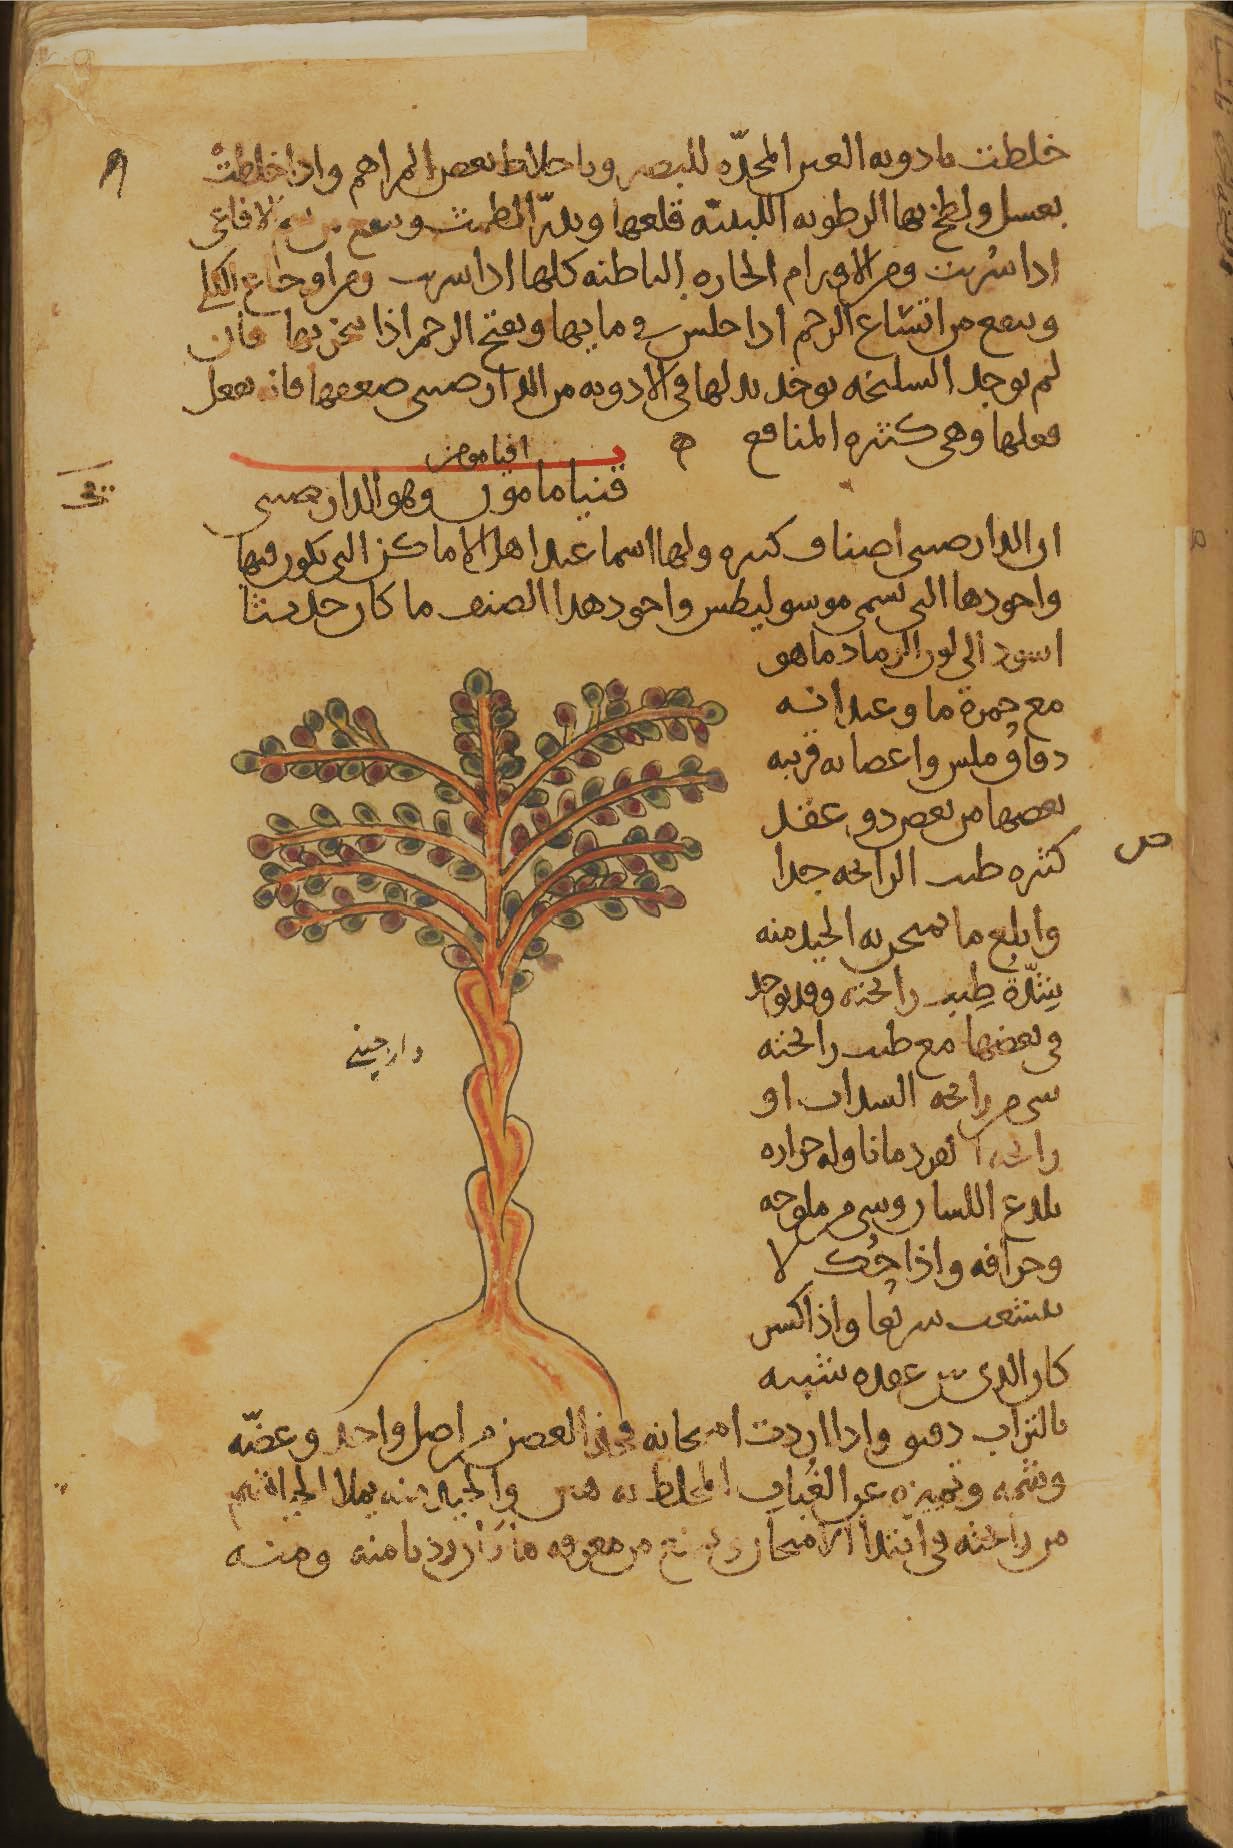 خلطت بادويه العين المحدّه للبصر وباخلاط بعض المراهم واذا خلطت
بعسل ولطخ بها الرطوبه اللبنيه قلعها ويدرّ الطمث وينفع من سم الافاعى
اذا شُربت ومن الاورام الحاره الباطنه كلها اذا شربت ومن اوجاع الكلى
وينفع من اتساع الرحم اذا جلس فى مايها ويفتح الرحم اذا تبخر بها فان
لم يوجد السليخه يوخذ بدلها فى الادويه من الدارصينى ضعفها فانه يفعل
فعلها وهى كثيره المنافع ه
قنيامامون وهو الدارصينى
ان الدارصينى اصناف كثيره ولها اسما عند اهل الاماكن التى يكون فيها
واجودها التى تسمى موسوليطس واجود هذا الصنف ما كان حديثا
اسود الى لون الرماد ما هو
مع حمرة ما وعيدانه
دقاق ملس واغصانه قريبه
بعضها من بعض ذو عقد
كثيره طيب الرائحه جدا
وابلغ ما يمتحن به الجيد منه
شدّة طيب رائحته وقد يوجد
فى بعضها مع طيب رائحته
شى من رائحه السداب او
رائحه القردمانا وله حراره
يلدع اللسان وشى من ملوحه
وحرافه واذا حُك لا
يتشعب سريعا واذا كسر
كان الذى بين عقده شبيه
بالتراب دقيق واذا اردت امتحانه فخذ الغصن من اصل واحد وعضّه
وشمه
من رائحته فى ابتدا الامتحان من معرفه ما كان منه ومنه
دارچينى